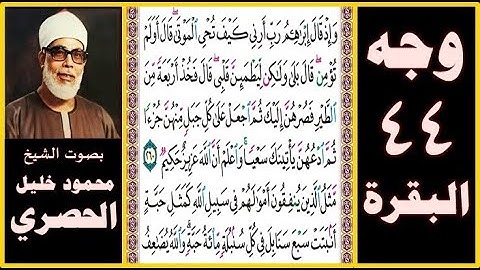 وجه
٤٤
البقرة
وَإِذْ قَالَ إِبْرَٰهِـۧمُ رَبِّ أَرِنِى كَيْفَ تُحْىِ ٱلْمَوْتَىٰ قَالَ أَوَلَمْ
تُؤْمِن قَالَ بَلَىٰ وَلَـٰكِن لِّيَطْمَئِنَّ قَلْبِى قَالَ فَخُذْ أَرْبَعَةً مِّنَ
ٱلطَّيْرِ فَصُرْهُنَّ إِلَيْكَ ثُمَّ ٱجْعَلْ عَلَىٰ كُلِّ جَبَلٍ مِّنْهُنَّ جُزْءًا
ثُمَّ ٱدْعُهُنَّ يَأْتِينَكَ سَعْيًا وَٱعْلَمْ أَنَّ ٱللَّهَ عَزِيزٌ حَكِيمٌ ٢٦٠
مَّثَلُ ٱلَّذِينَ يُنفِقُونَ أَمْوَٰلَهُمْ فِى سَبِيلِ ٱللَّهِ كَمَثَلِ حَبَّةٍ
أَنۢبَتَتْ سَبْعَ سَنَابِلَ فِى كُلِّ سُنۢبُلَةٍ مِّا۟ئَةُ حَبَّةٍ وَٱللَّهُ يُضَـٰعِفُ
بصوت الشيخ
محمود خليل
الحصري